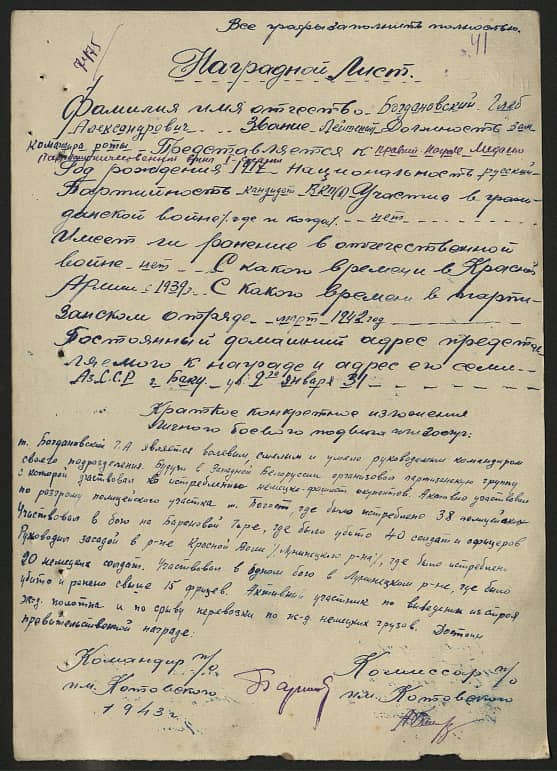 Все графы заполнить полностью.
41
Наградной Лист.
Фамилия имя отчество Богдановский Глеб
Александрович Звание Лейтенант Должность Зам
Командира роты Представляется к правит. награде Медаль
Партизану Отечественной войны I степени
Год рождения 1917 национальность русский
Партийность кандидат ВКП(б) Участие в граж-
данской войне /где и когда/. нет
Имеет ли ранение в отечественной
войне нет С какого времени в Красной
Армии с 1939г. С какого времени в парти-
занском отряде март 1942 год
Постоянный домашний адрес представ
ляемого к награде и адрес его семи
Аз.ССР г. Баку ул. 9го января 31
Краткое конкретное изложения
личного боевого подвига или заслуг:
т. Богдановский Г.А является волевым, смелым и умело руководящим командиром
своего подразделения. Будучи в Западной Белоруссии организовал партизанскую группу
с которой участвовал по истреблению немецко-фашист. оккупантов. Активно участвовал
по разгрому полицейского участка м. Погост, где было истреблено 38 полицейских
Участвовал в бою на Барановой Горе, где было убито 40 солдат и офицеров
Руководил засадой в р-не Красной Воли /Лунинецкого р-на/, где было истреблено
20 немецких солдат. Участвовал в одном бою в Лунинецком р-не, где было
убито и ранено свыше 15 фрицев. Активный участник по выведению из строя
ж.д. полотна и по срыву перевозки по ж-д немецких грузов. Достоин
правительственной награде:
Командир п/о Комиссар п/о
им. Котовского им. Котовского
1943 г.